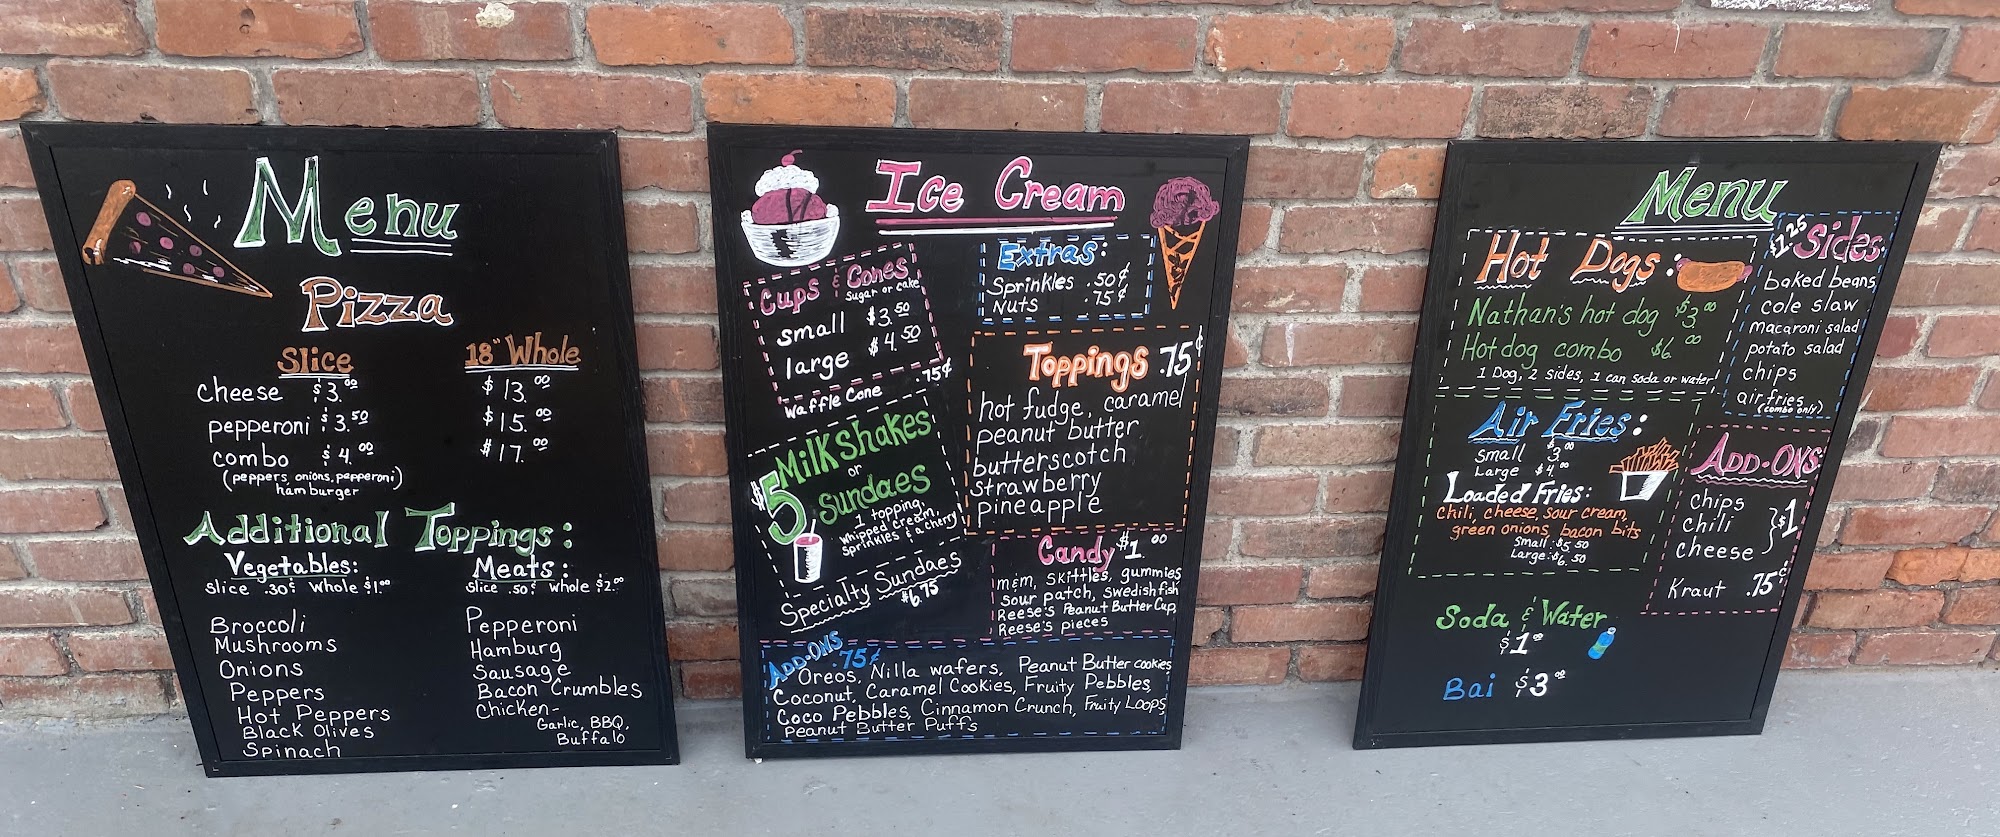 Menu
Pizza
Slice
cheese $3.00
pepperoni $3.50
combo $4.00
(peppers, onions, pepperoni)
hamburger
18" Whole
$13.00
$15.00
$17.00
Additional Toppings:
Vegetables:
Slice .30¢ Whole $1.00
Broccoli
Mushrooms
Onions
Peppers
Hot Peppers
Black Olives
Spinach
Meats:
Slice .50¢ Whole $2.00
Pepperoni
Hamburg
Sausage
Bacon Crumbles
Chicken-
Garlic, BBQ,
Buffalo
Ice Cream
Cups & Cones
Sugar or cake
small $3.50
large $4.50
Waffle Cone .75¢
Extras:
Sprinkles .50¢
Nuts .75¢
Toppings .75¢
hot fudge, caramel
peanut butter
butterscotch
strawberry
pineapple
$5 Milkshakes
or
Sundaes
1 topping,
whipped cream,
sprinkles & a cherry
Specialty Sundaes
$6.75
Candy $1.00
m&m, skittles, gummies
sour patch, swedish fish
Reese's Peanut Butter Cup,
Reese's pieces
ADD-ONS
.75¢
Oreos, Nilla wafers, Peanut Butter cookies
Coconut, Caramel Cookies, Fruity Pebbles,
Coco Pebbles, Cinnamon Crunch, Fruity Loops
Peanut Butter Puffs
Menu
Hot Dogs:
Nathan's hot dog $3.00
Hot dog combo $6.00
1 Dog, 2 sides, 1 can soda or water
$1.25 Sides
baked beans
cole slaw
macaroni salad
potato salad
chips
air fries
(combo only)
Air Fries:
Small $3.00
Large $4.00
Loaded Fries:
Chili, cheese, sour cream,
green onions, bacon bits
Small: $5.50
Large: $6.50
ADD-ONS:
Chips
chili
cheese
$1
Kraut .75¢
Soda & Water
$1.00
Bai $3.00